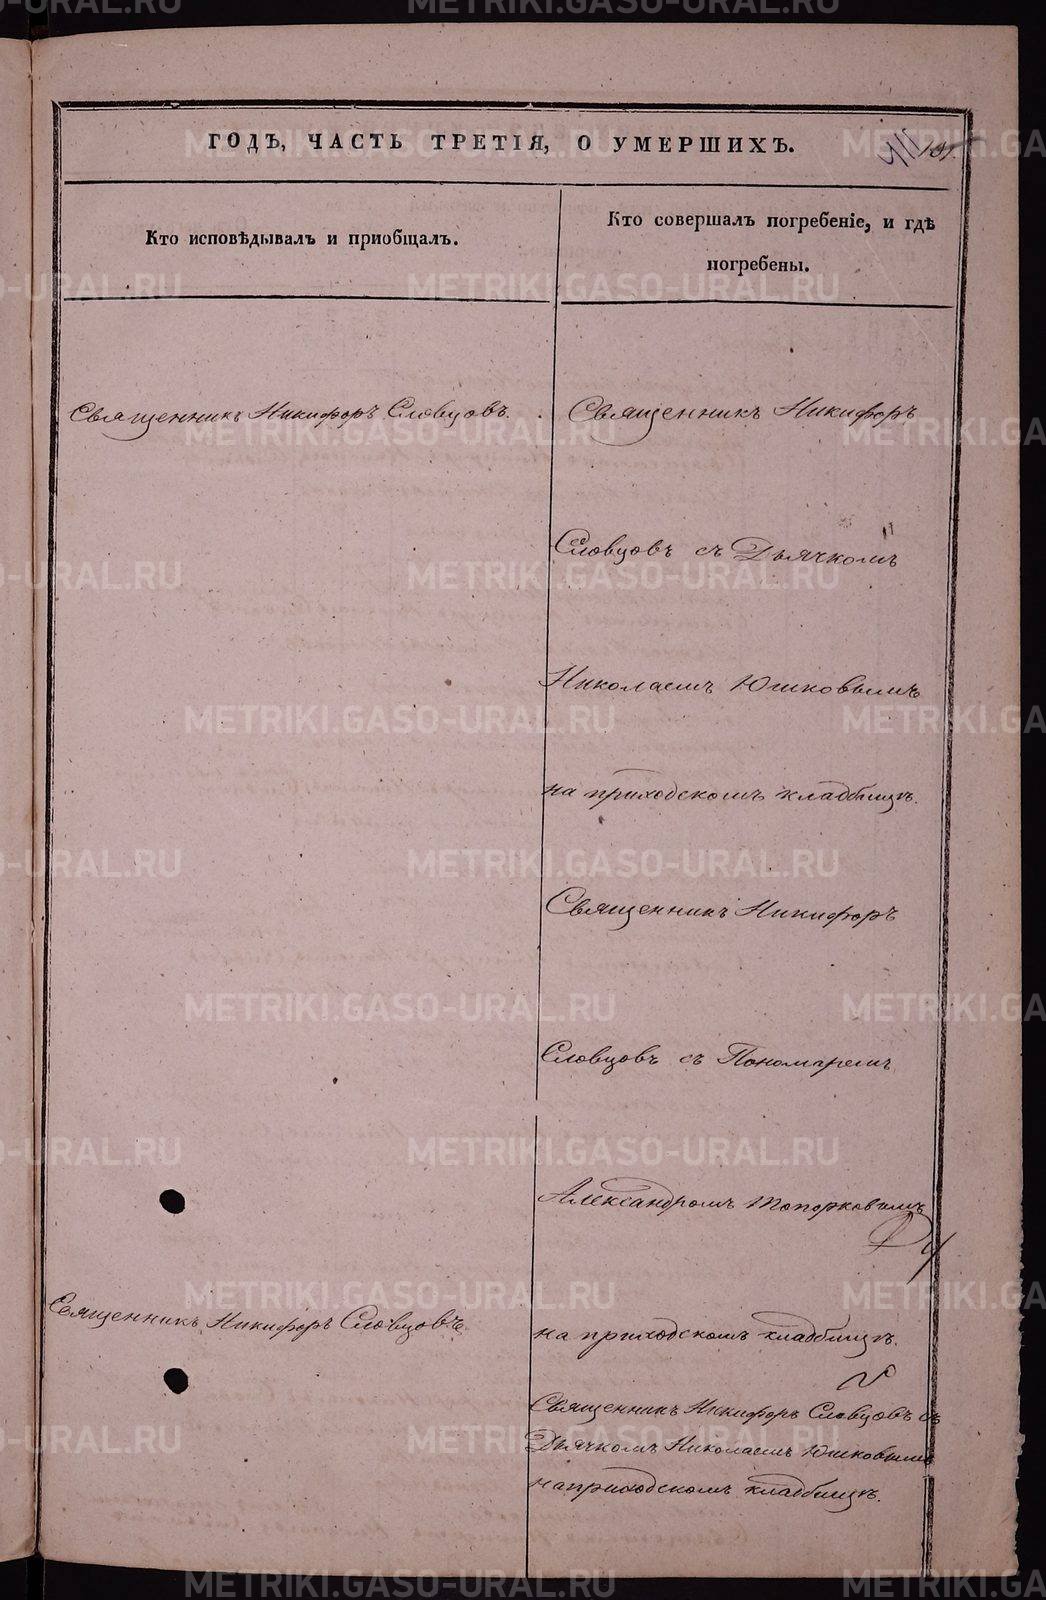 ГОДЪ, ЧАСТЬ ТРЕТІЯ, О УМЕРШИХЪ.
Кто исповѣдывалъ и пріобщалъ.
Кто совершалъ погребеніе, и гдѣ
погребены.
Священникъ Никифоръ Словцовъ.
Священникъ Никифоръ
Словцовъ съ Дьячкомъ
Николаемъ Юшковымъ
на приходскомъ кладбищѣ.
Священникъ Никифоръ
Словцовъ съ Пономаремъ
Александромъ Топорковымъ
на приходскомъ кладбищѣ.
Священникъ Никифоръ Словцовъ
Священникъ Никифоръ Словцовъ съ
Дьячкомъ Николаемъ Юшковымъ
на приходскомъ кладбищѣ.
METRIKI.GASO-URAL.RU